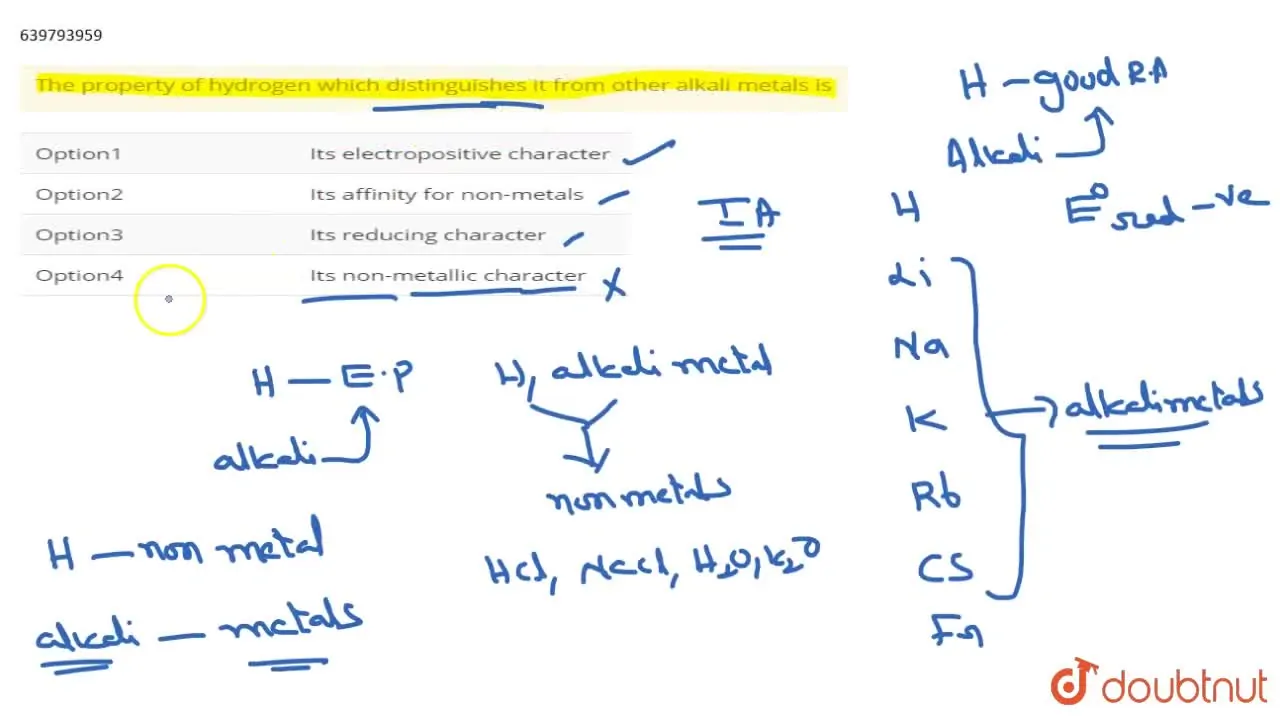 639793959
The property of hydrogen which distinguishes it from other alkali metals is
Option1 Its electropositive character
Option2 Its affinity for non-metals
Option3 Its reducing character
Option4 Its non-metallic character
H - good R.A
Alkali
IA
H
E° red -ve
Li
Na
K
alkali metals
Rb
CS
Fr
H - E.P
alkali
H, alkali metal
non metals
HCl, NaCl, H2O, K2O
H - non metal
alkali - metals
doubtnut